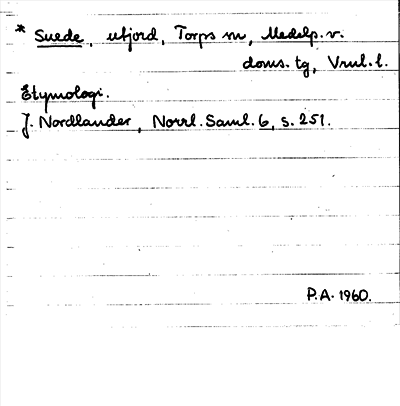 * Suede, utjord, Torps sn, Medelp. v.
doms. tg, Vrnl. l.
Etymologi.
J. Nordlander, Norrl. Saml. 6, s. 251.
P.A. 1960.